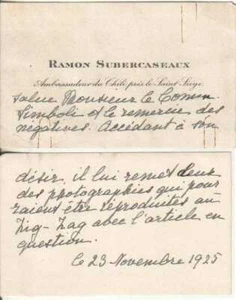 RAMON SUBERCASEAUX
Ambassadeur du Chili près le Saint Siège
salue Monsieur le Comm.
Simboli et le remercie des
négatives. Accédant à son
désir, il lui remet deux
des photographies qui pour
raient être reproduites au
Zig-Zag avec l'article en
question.
le 23 Novembre 1925